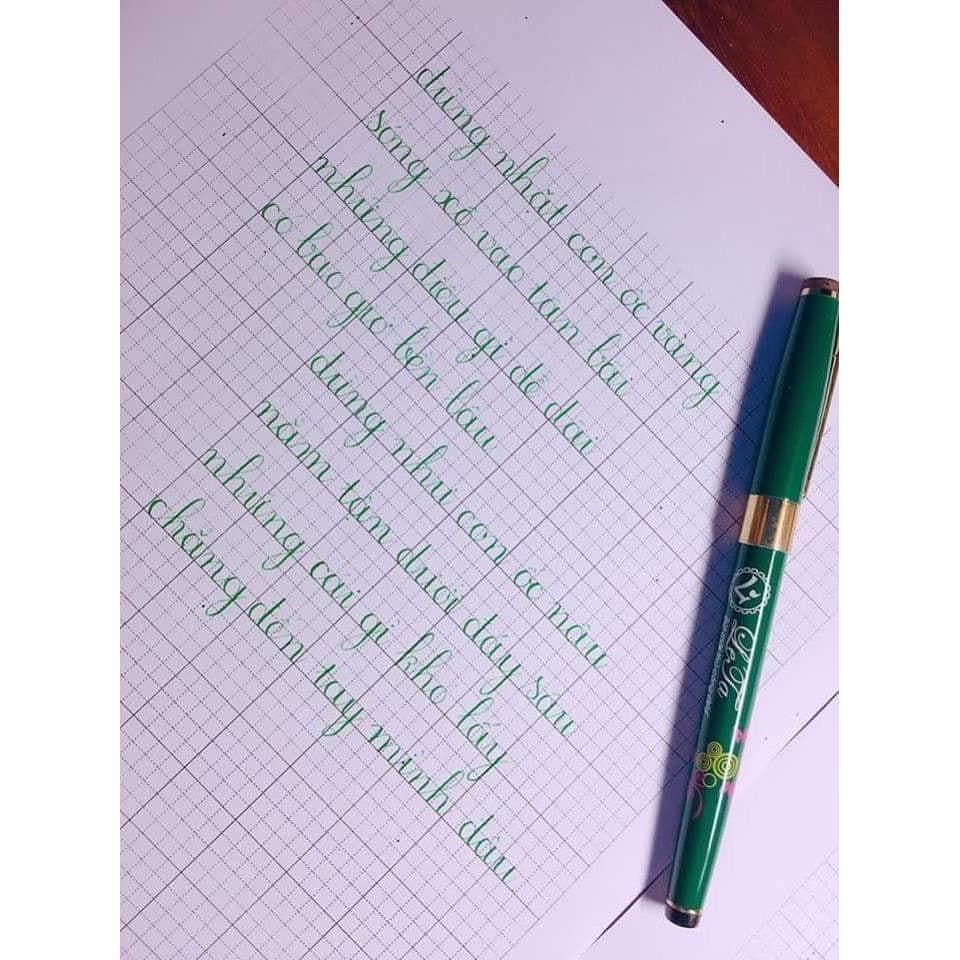 đừng nhặt con ốc vàng
sóng xô vào tận bãi
những điều gì dễ dãi
có bao giờ bền lâu
đừng như con ốc nâu
nằm tận dưới đáy sâu
những cái gì khó lấy
chẳng đến tay mình đâu
SeTa